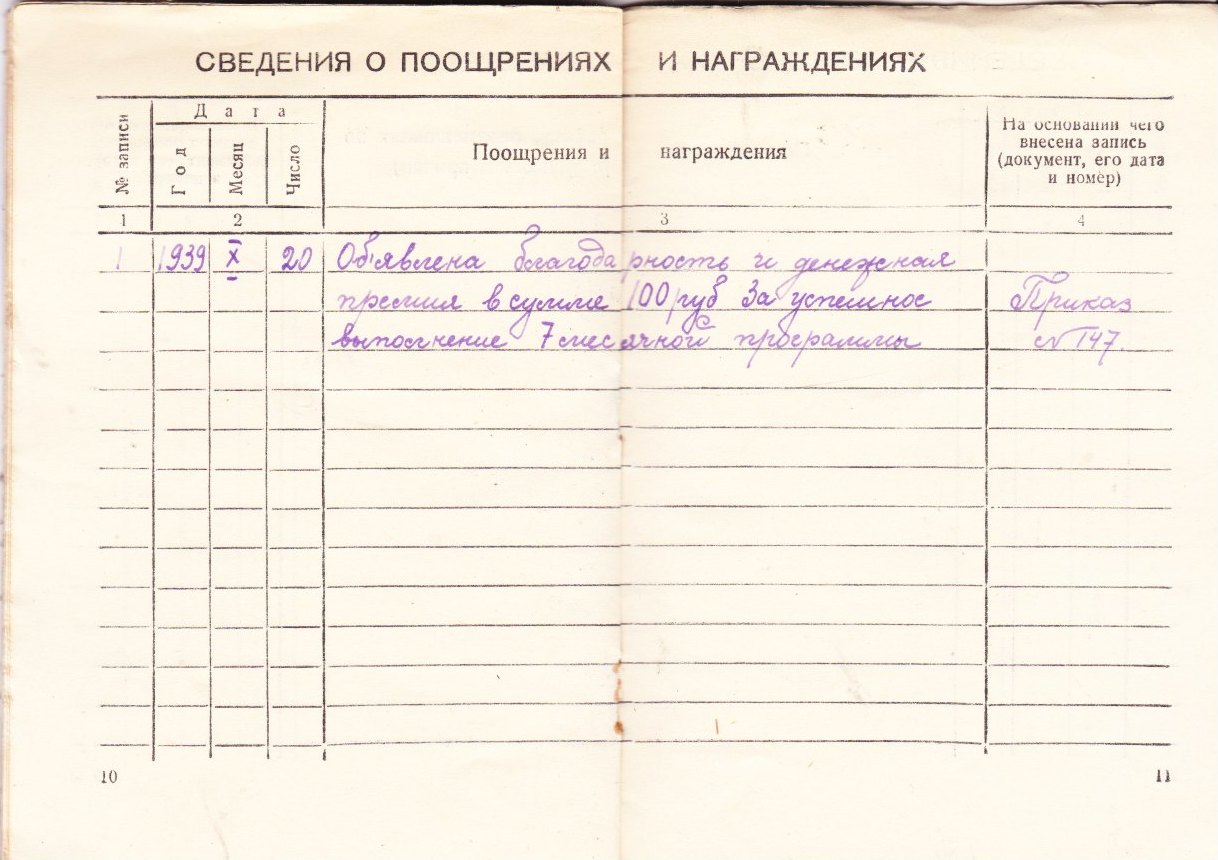 СВЕДЕНИЯ О ПООЩРЕНИЯХ И НАГРАЖДЕНИЯХ
№ записи
Дата
Год
Месяц
Число
Поощрения и награждения
На основании чего
внесена запись
(документ, его дата
и номер)
1 2 3 4
1 1939 X 20 Объявлена благодарность и денежная
премия в сумме 100 руб За успешное Приказ
выполнение 7 месячной программы № 147.
10 11